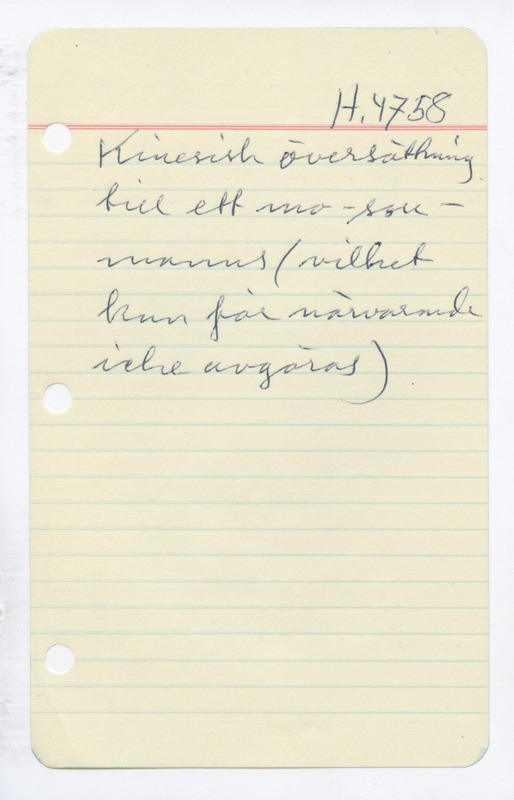 H.4758
Kinesisk översättning
till ett mo-sou-
manus (vilket
kan för närvarande
icke avgöras)